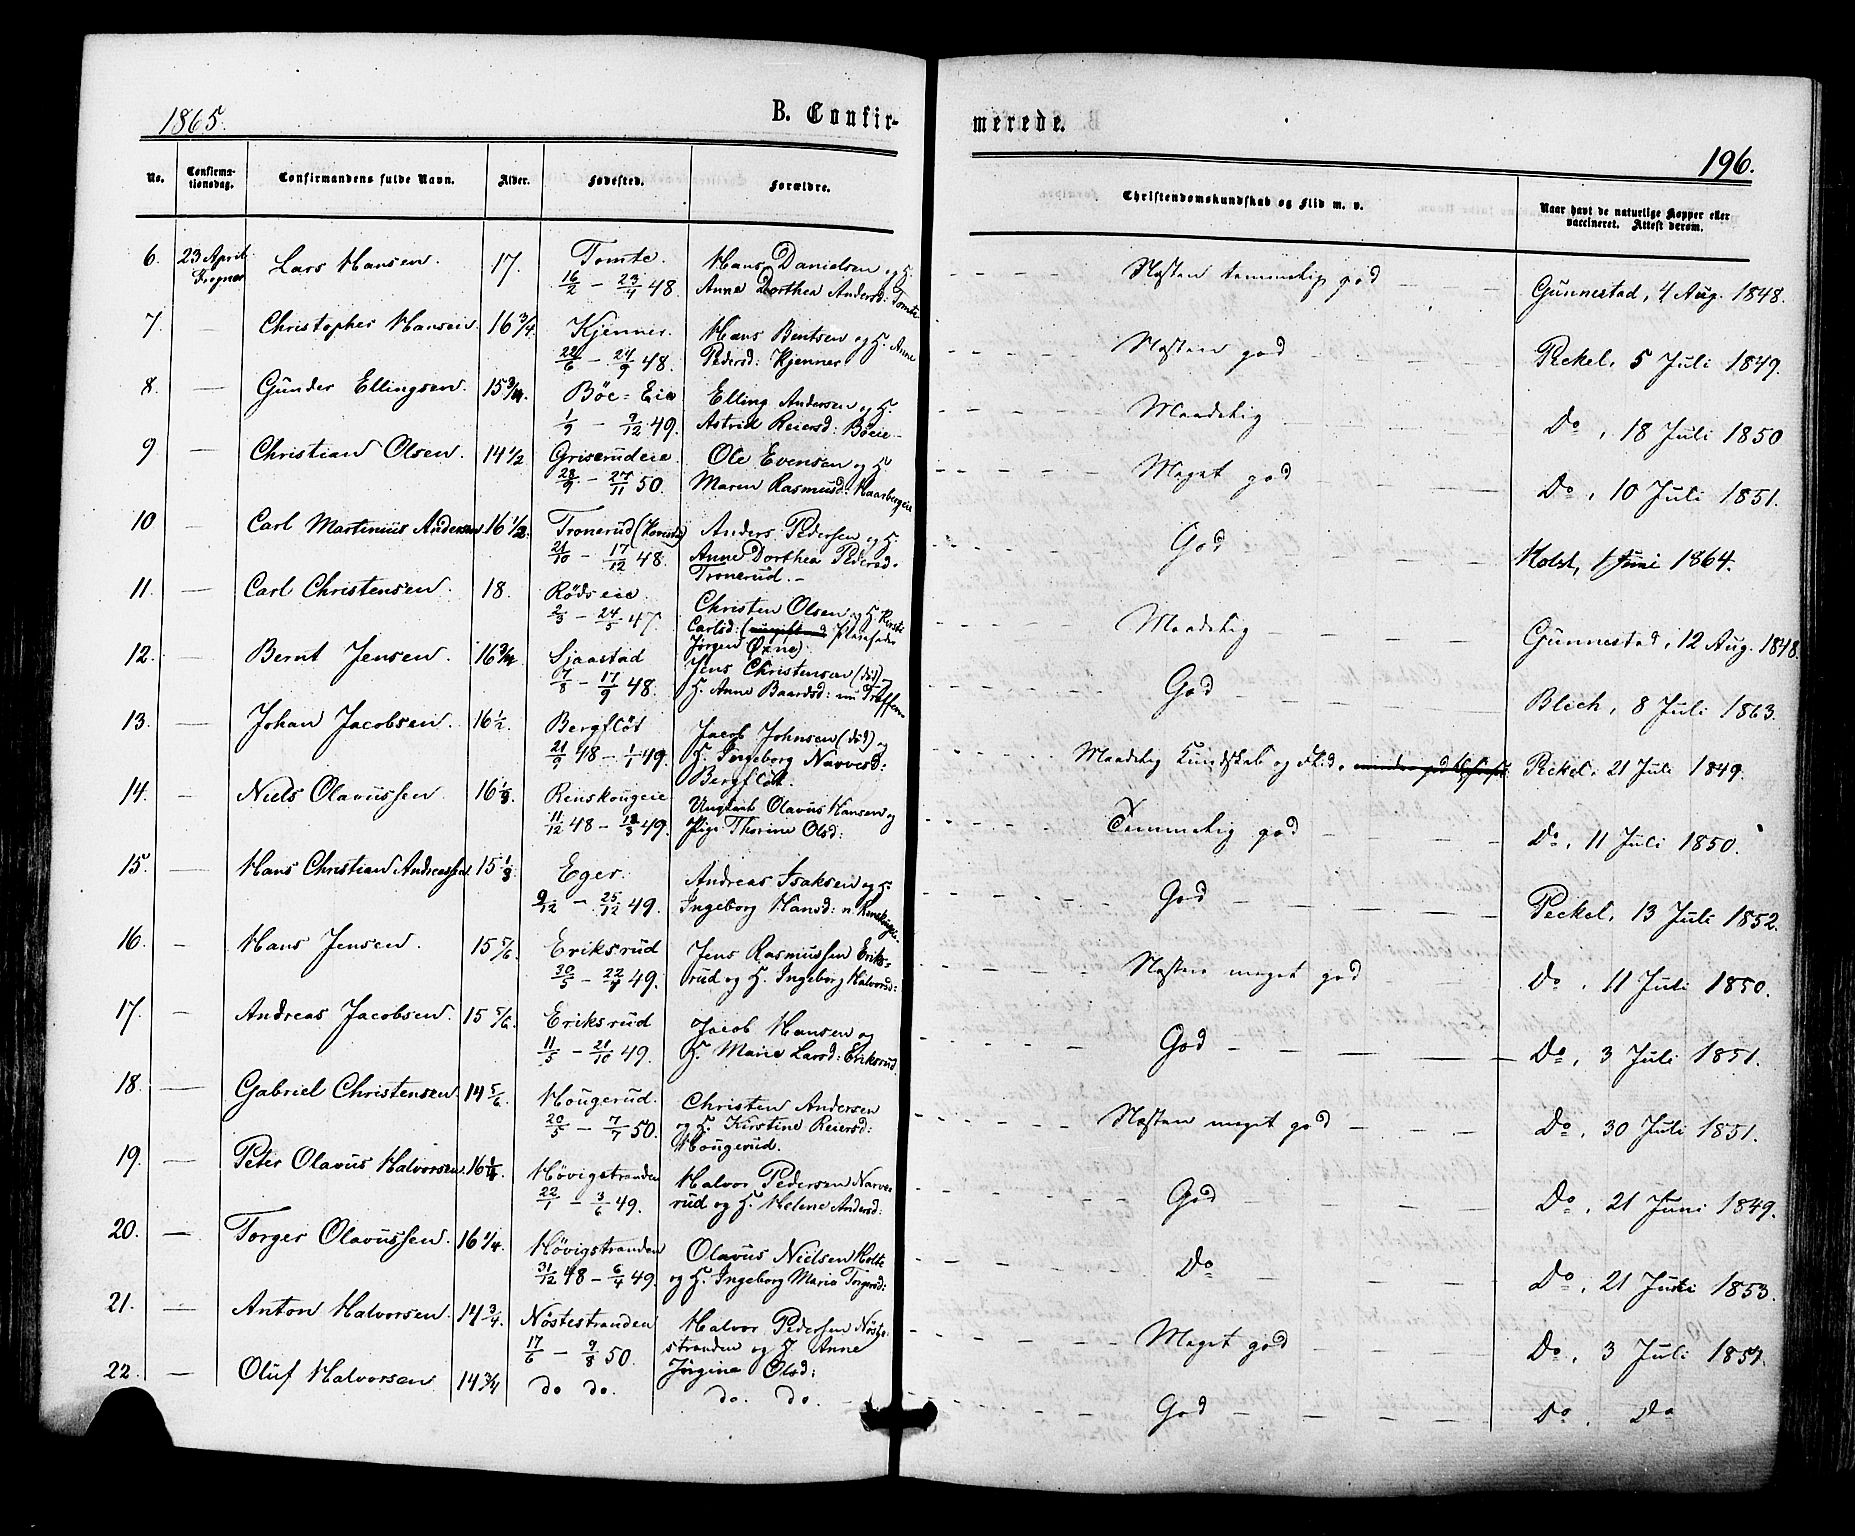 1865.
B. Confirmerede.
196.
No.
Confirmationsdag.
Confirmandens fulde Navn.
Alder.
Fødested.
Forældre.
Christendomskundskab og Flid m. v.
Naar havt de naturlige Kopper eller vaccineret. Attest derom.
6. 23 April Lars Hansen. 17. Tomte. 16/2 – 23/4 48. Hans Danielsen og H. Anne Dorthea Andersd: Tomte
Næsten temmelig god Gunnestad, 4 Aug. 1848.
7. — Christopher Hansen 16 3/4. Kjenner. 22/6 – 24/9 48. Hans Bentsen og H. Anne Pedersd: Kjenner
Næsten god Peckel, 5 Juli 1849.
8. — Gunder Ellingsen. 15 3/4. Böe-Eie 1/9 – 9/12 49. Elling Andersen og H. Astrid Reiersd: Böeie
Maadelig Do, 18 Juli 1850
9 — Christian Olsen. 14 1/2 Griserudeie. 28/9 – 27/11 50. Ole Evensen og H. Maren Rasmusd: Haasbergeie
Meget god Do, 10 Juli 1851.
10 — Carl Martinius Andersen 16 1/2. Tronerud 21/10 – 17/12 48. Anders Pedersen og H. Anne Dorthea Pedersd. Tronerud.
God Holst, 1 Juni 1864.
11. — Carl Christensen. 18. Rödseie. 2/3 – 24/5 47. Christen Olsen og H. Kirste Carlsd: Jörgen Oxne)
Maadelig Gunnestad, 12 Aug. 1848.
12. — Bernt Jensen. 16 3/4 Sjaastad 7/8 – 17/9 48. Jens Christensen (död) og H. Anne Baardsd: nu
God Blich, 8 Juli 1863.
13. — Johan Jacobsen. 16 1/2. Bergflöt 21/9 48 – 1/1 49. Jacob Johnsen (död) og H. Ingeborg Narvesd: Bergflöt
Maadelig Kundskab og Flid. Peckel, 21 Juli 1849.
14. — Niels Olavussen. 16 1/3. Renskougeie 11/12 48 – 18/3 49. Ungkarl Olavus Hansen og Pige Thorine Olsd:
Temmelig god Do, 11 Juli 1850.
15. — Hans Christian Andreassen 15 1/3. Eger. 9/12 – 25/12 49. Andreas Isaksen og H. Ingeborg Hansd:
God Peckel, 13 Juli 1852.
16. - Hans Jensen. 15 5/6. Eriksrud 30/5 – 22/7 49. Jens Rasmussen Eriksrud og H. Ingeborg Halvorsd:
Næsten meget god Do, 11 Juli 1850.
17. — Andreas Jacobsen. 15 5/6. Eriksrud 11/5 – 21/10 49. Jacob Hansen og H. Marie Larsd: Eriksrud
God Do, 3 Juli 1851.
18. — Gabriel Christensen. 14 5/6. Hougerud. 20/5 – 7/7 50. Christen Andersen og H. Kirstine Reiersd: Hougerud.
Næsten meget god Do, 30 Juli 1851.
19. — Peter Olavus Halvorsen. 16 1/4. Hövigstranden 22/1 – 3/6 49. Halvor Pedersen Narverud og H. Helene Andersd:
God Do, 21 Juni 1849.
20. — Torger Olavussen. 16 1/4. Hövigstranden 31/12 48 – 6/4 49. Olavus Nielsen Holte og H. Ingeborg Marie Torgersd:
Do Do, 21 Juli 1853.
21. — Anton Halvorsen. 14 3/4. Nöstestranden 17/6 – 9/8 50. Halvor Pedersen Nöstestranden og H. Anne Jörgine Olsd:
Meget god Do, 3 Juli 1851.
22. — Oluf Halvorsen 14 3/4 do do. do. do.
God Do. Do